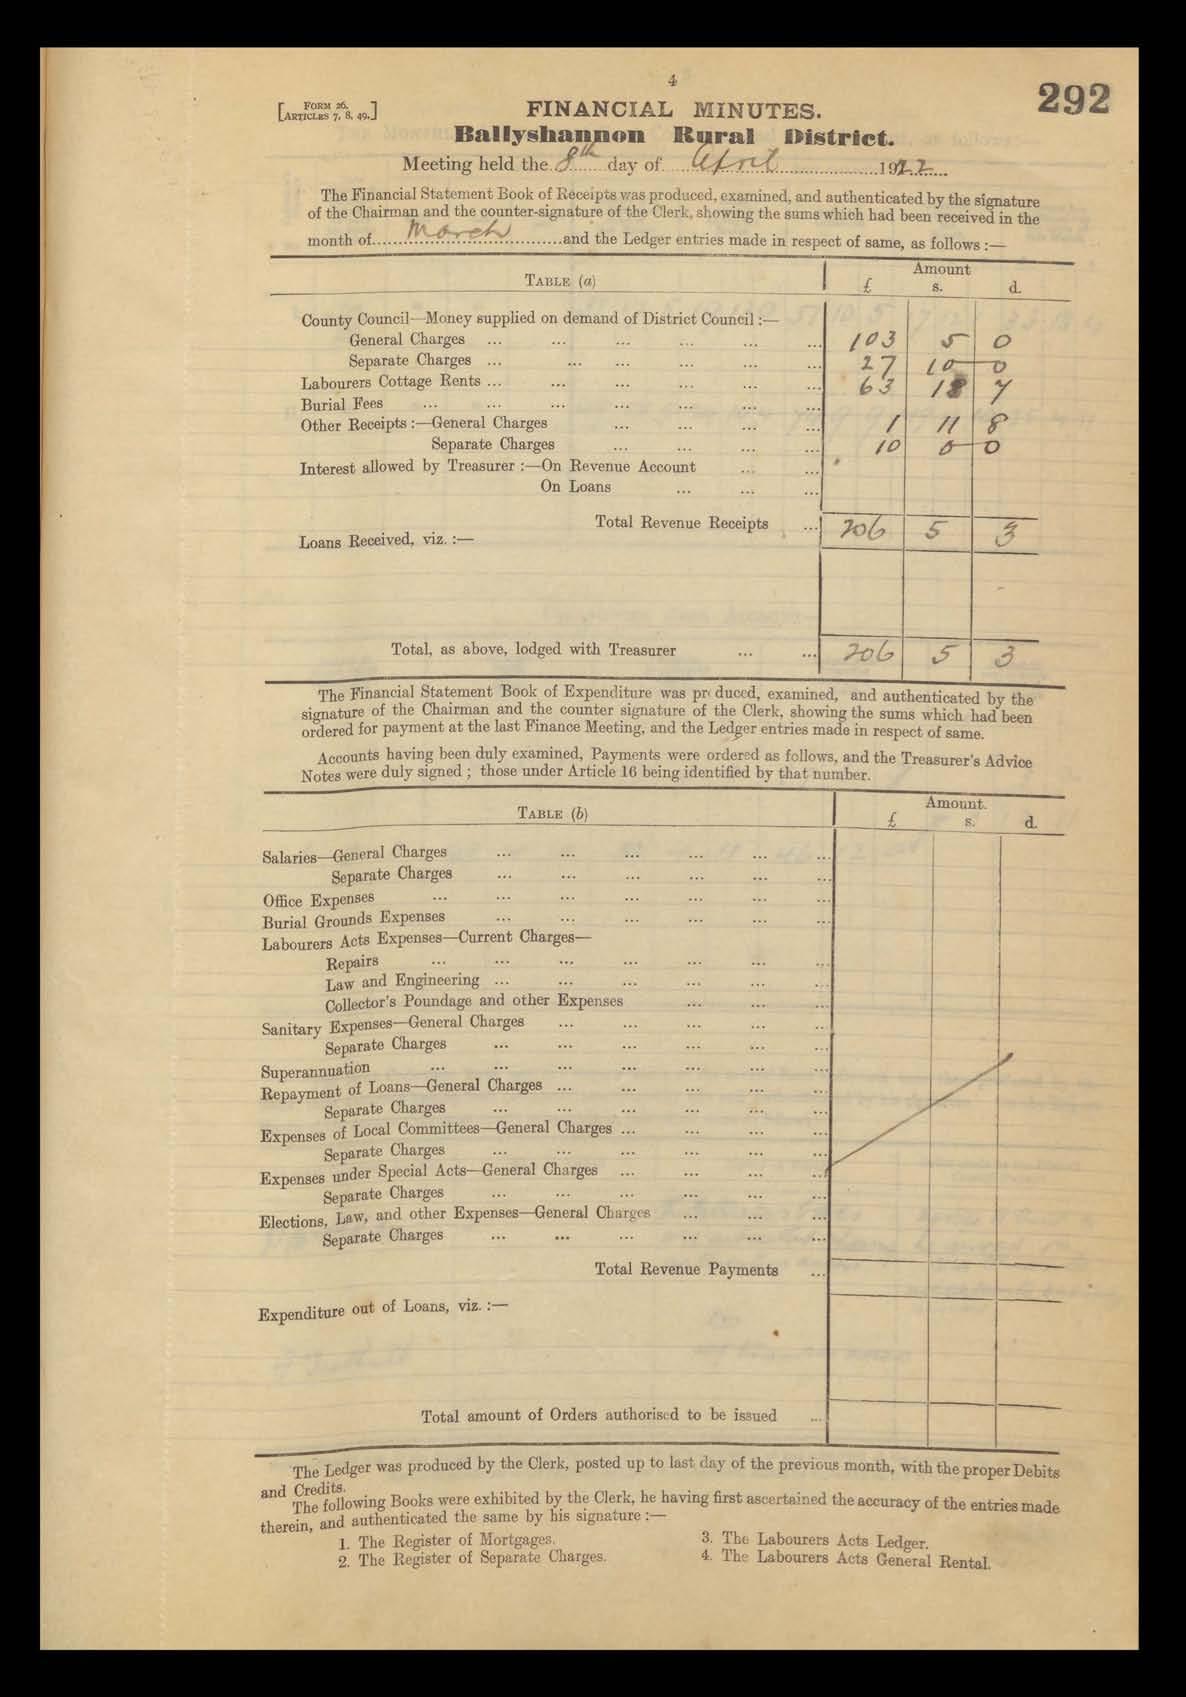 4
292
[FORM 26.
ARTICLES 7, 8, 49.]
FINANCIAL MINUTES.
Ballyshannon Rural District.
Meeting held the 8th day of April 1922
The Financial Statement Book of Receipts was produced, examined, and authenticated by the signature
of the Chairman and the counter-signature of the Clerk, showing the sums which had been received in the
month of March and the Ledger entries made in respect of same, as follows :—
TABLE (a) Amount
£ s. d.
County Council—Money supplied on demand of District Council :—
General Charges ... ... ... ... ... ... 103 5 0
Separate Charges ... ... ... ... ... ... 27 10 0
Labourers Cottage Rents ... ... ... ... ... ... 63 18 7
Burial Fees ... ... ... ... ... ... ...
Other Receipts :—General Charges ... ... ... ... 1 11 8
Separate Charges ... ... ... ... 10 0 0
Interest allowed by Treasurer :—On Revenue Account ... ...
On Loans ... ... ...
Total Revenue Receipts ... 206 5 3
Loans Received, viz. :—
Total, as above, lodged with Treasurer ... ... 206 5 3
The Financial Statement Book of Expenditure was pr duced, examined, and authenticated by the
signature of the Chairman and the counter signature of the Clerk, showing the sums which had been
ordered for payment at the last Finance Meeting, and the Ledger entries made in respect of same.
Accounts having been duly examined, Payments were ordered as follows, and the Treasurer's Advice
Notes were duly signed ; those under Article 16 being identified by that number.
TABLE (b) Amount.
£ s. d.
Salaries—General Charges ... ... ... ... ... ...
Separate Charges ... ... ... ... ... ...
Office Expenses ... ... ... ... ... ... ...
Burial Grounds Expenses ... ... ... ... ... ...
Labourers Acts Expenses—Current Charges—
Repairs ... ... ... ... ... ... ...
Law and Engineering ... ... ... ... ... ...
Collector's Poundage and other Expenses ... ... ...
Sanitary Expenses—General Charges ... ... ... ... ...
Separate Charges ... ... ... ... ... ...
Superannuation ... ... ... ... ... ... ...
Repayment of Loans—General Charges ... ... ... ... ...
Separate Charges ... ... ... ... ... ...
Expenses of Local Committees—General Charges ... ... ... ...
Separate Charges ... ... ... ... ... ...
Expenses under Special Acts—General Charges ... ... ... ...
Separate Charges ... ... ... ... ... ...
Elections, Law, and other Expenses—General Charges ... ... ...
Separate Charges ... ... ... ... ... ...
Total Revenue Payments ...
Expenditure out of Loans, viz. :—
Total amount of Orders authorised to be issued ...
The Ledger was produced by the Clerk, posted up to last day of the previous month, with the proper Debits
and Credits.
The following Books were exhibited by the Clerk, he having first ascertained the accuracy of the entries made
therein, and authenticated the same by his signature :—
1. The Register of Mortgages. 3. The Labourers Acts Ledger.
2. The Register of Separate Charges. 4. The Labourers Acts General Rental.